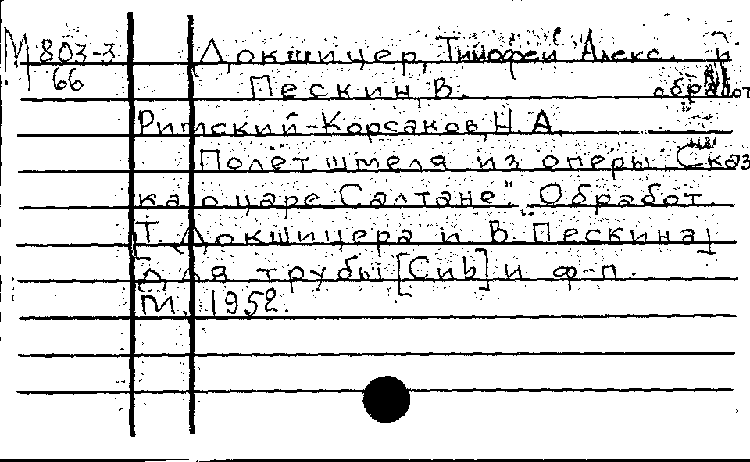 М 803-3
66
Докшицер, Тимофей Алекс. и
Пескин, В. обработ
Римский-Корсаков, Н. А.
Полёт шмеля из оперы "Сказ
ка о царе Салтане". Обработ.
[Т. Докшицера и В. Пескина]
для трубы [Cиb] и ф-п.
М. 1952.